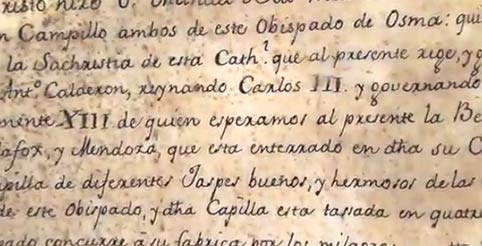 n Campillo ambos de este Obispado de Osma: qui
la Sachristia de esta Cath.l que al presente rige, y g
Ant.o Calderon, reynando Carlos III. y governando
mente XIII de quien esperamos al presente la Be
lafox, y Mendoza, que esta enterrado en dha su C
apilla de diferentes Jaspes buenos, y hermosos de las
de este Obispado, y dha Capilla esta tassada en quatro